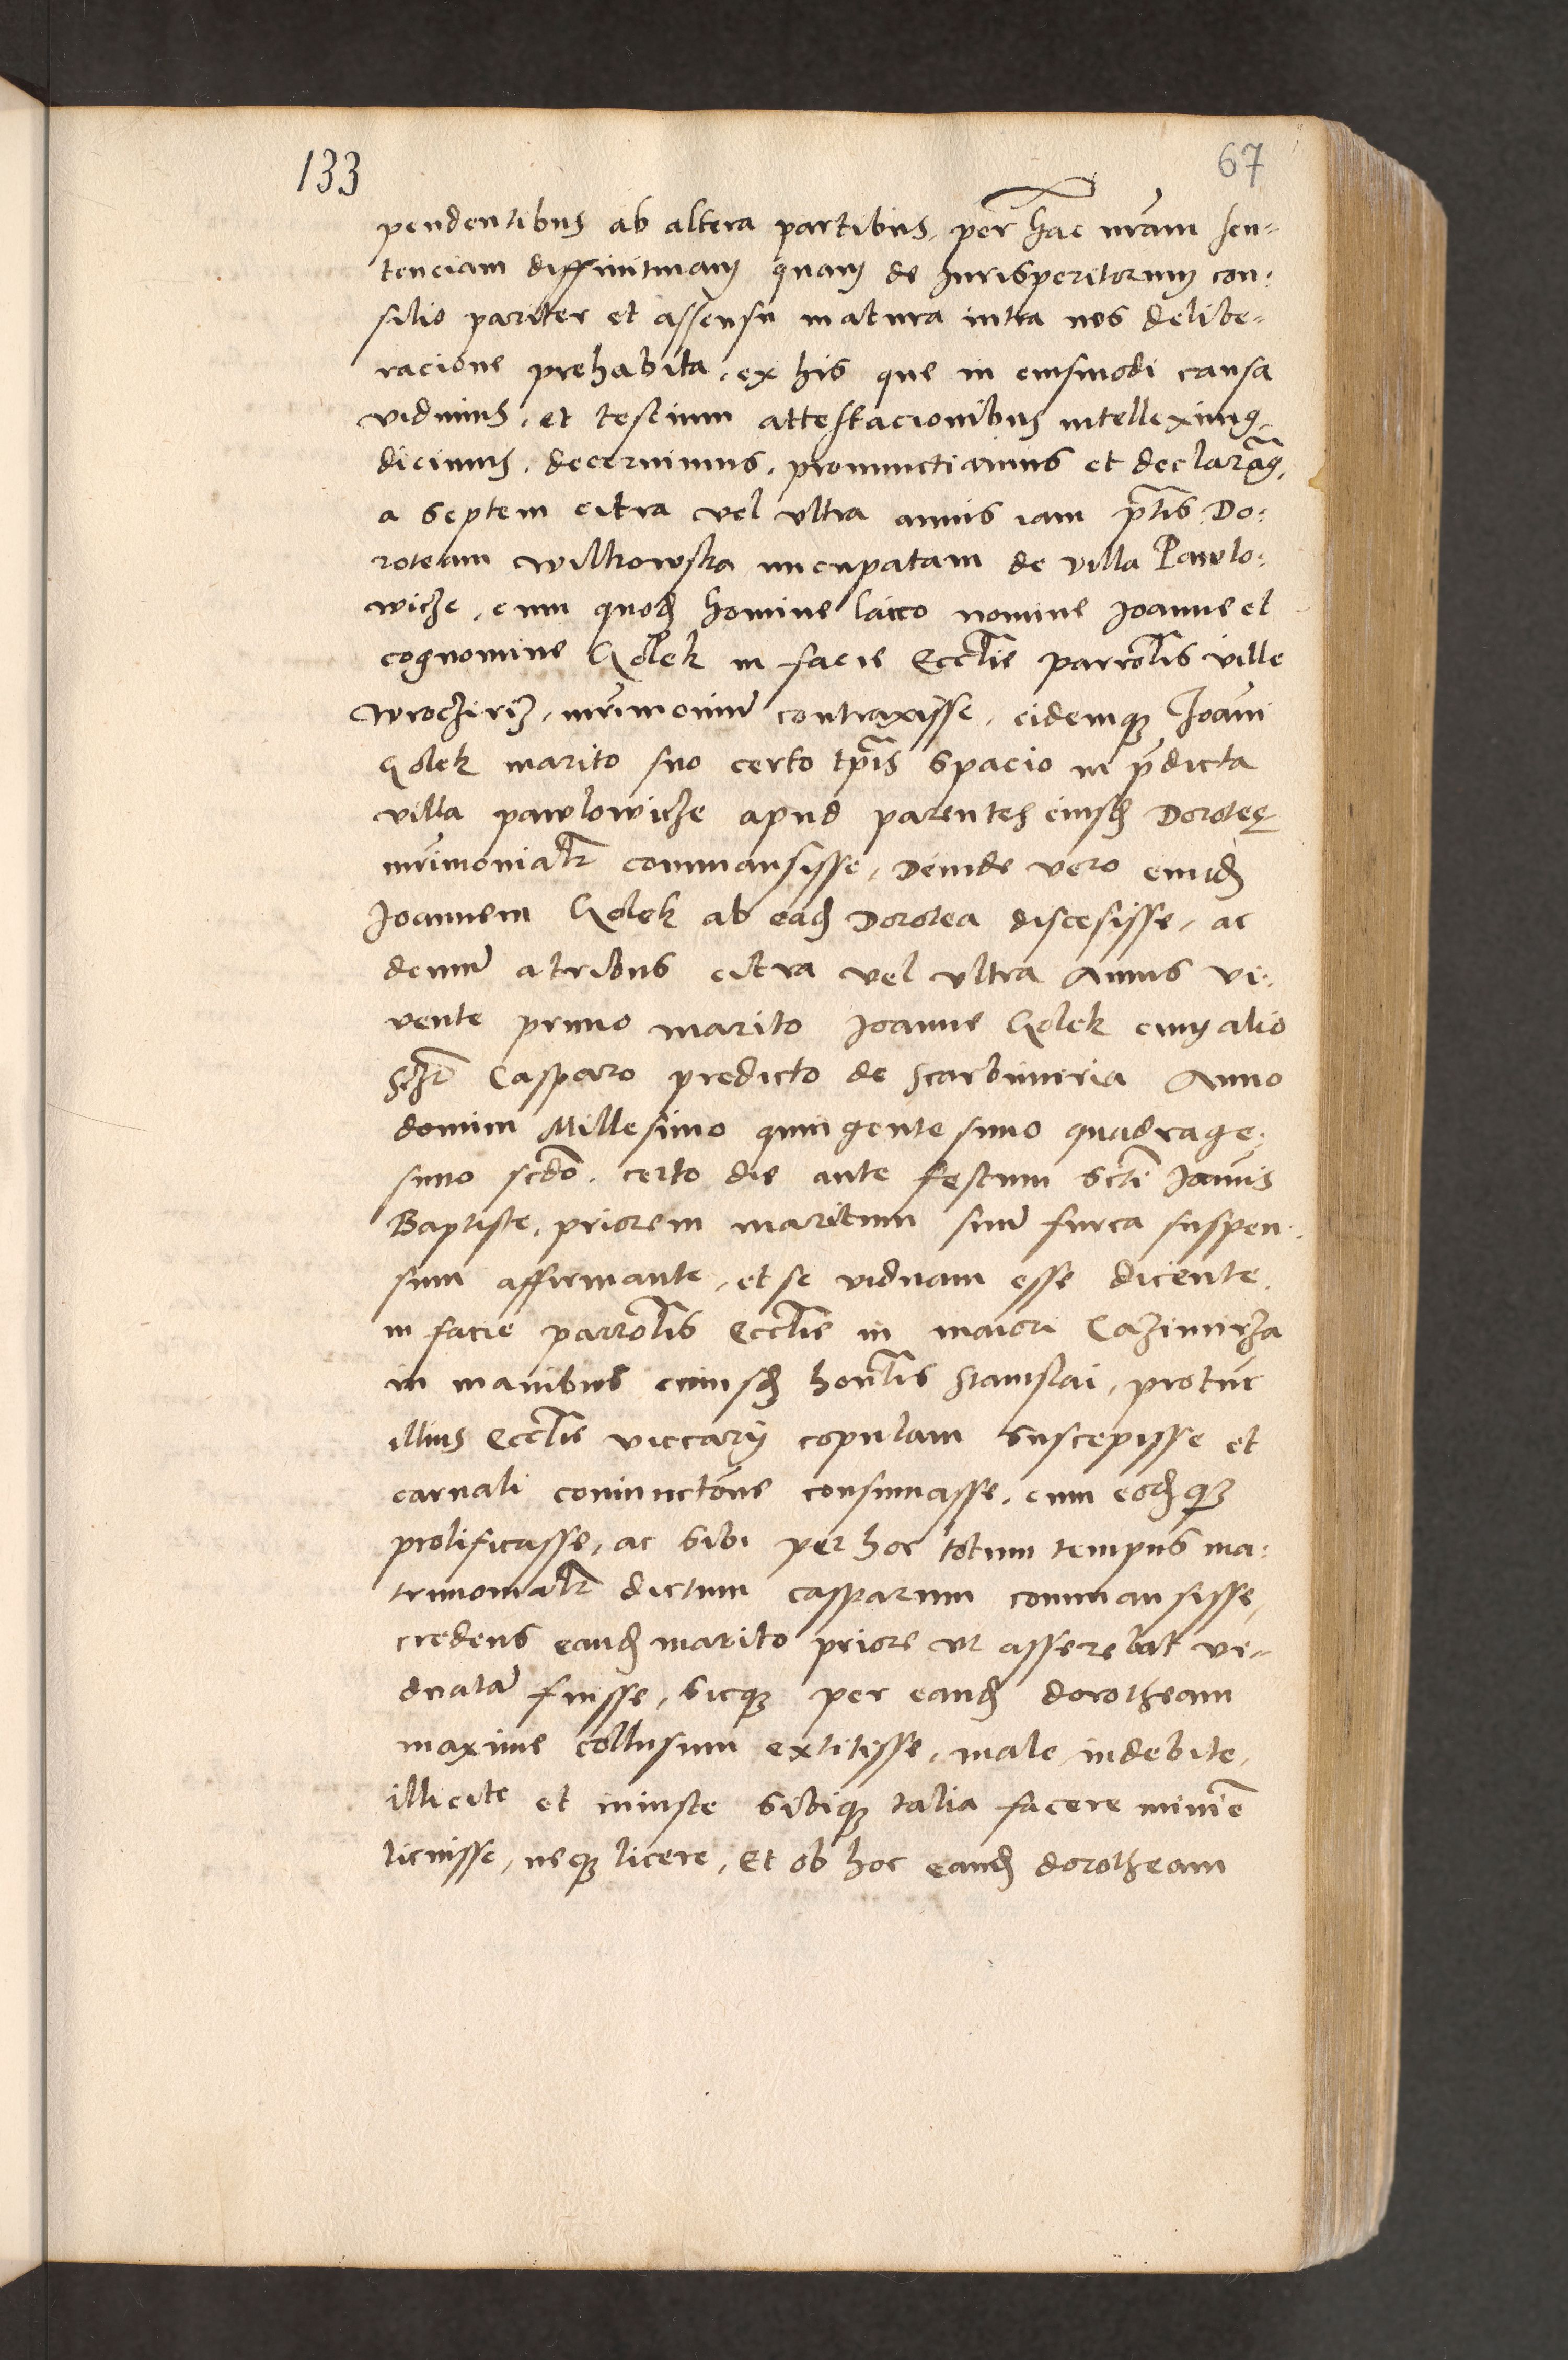 133
67
pendentibus ab altera partibus, per hãc nr̃am sen-
tenciam diffinitiuam quam de Jurisperitorum con:
silio pariter et assensu matura intra nos delibe-
racione prehabita, ex his que in eiusmodi causa
vidimus, et testium attestacionibus intelleximus,
dicimus, decernimus, pronunctiamus et declaram̃us,
a septem citra vel vltra annis iam pr̃tis Do:
roteam wilkowska nuncupatam de villa Pawlo:
wicze, cum quod̃ homine laico nomine Joanne et
cognomine Golek in facie Eccl̃ie parrol̃is ville
wrocziricz, mr̃imoniũ contraxisse, eidemqȝ Joañi
Golek marito suo certo tp̃is spacio in p̃dicta
villa pawlowicze apud parentes eiusd̃ Dorotee
mr̃imonialr̃ commansisse, Deinde vero eund̃
Joannem Golek ab ead̃ Dorotea discesisse, ac
demũ a tribus citra vel vltra Annis vi:
vente primo marito Joanne Golek cum alio
Casparo predicto de Scarbimiria Anno
domini Millesimo quingentesimo quadrage:
simo scd̃o, certo die ante festum scti Joañis
Baptiste, priorem maritum suũ furca suspen:
sum affirmante, et se viduam esse dicente,
in facie parrol̃is Eccl̃ie in maiori Cazimirza
in manibus cuiusd̃ honr̃lis Stanislai, protũc
illius Eccl̃ie viccarij copulam suscepisse et
carnali coniunctõne consumasse, cum eod̃qȝ
prolificasse, ac sibi per hoc totum tempus ma:
trimonialr̃ dictum casparum commansisse,
credens eand̃ marito priore vt asserebat vi-
duatã fuisse, sicqȝ per eand̃ dorotheam
maxime collusum extitisse, male indebite,
illicite et iniuste sibiqȝ talia facere minĩe
licuisse, neqȝ licere, Et ob hoc eand̃ dorotheam